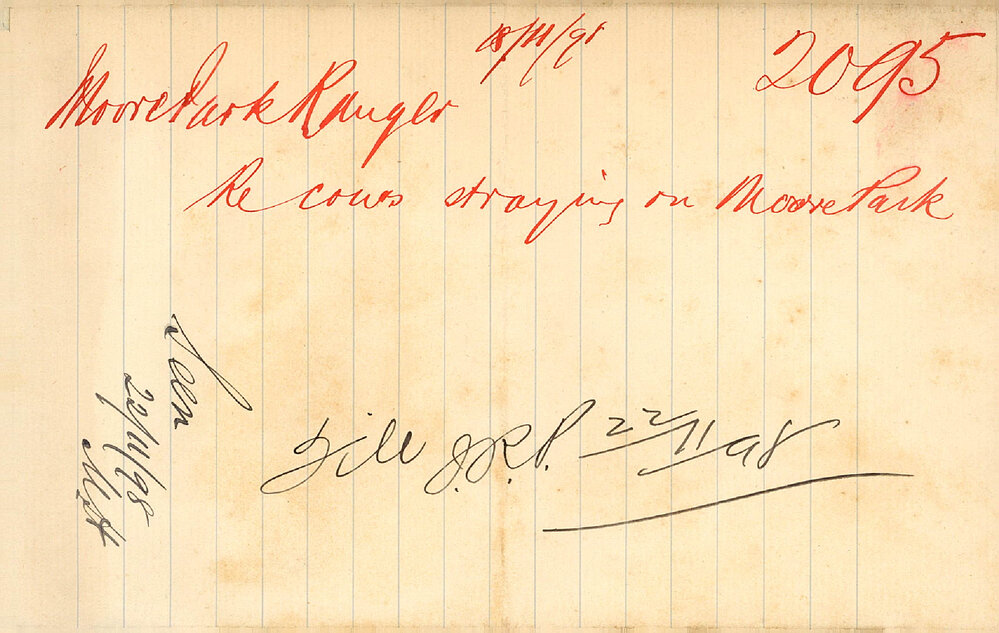 18/11/98
2095
Moore Park Ranger
Re cows straying on Moore Park
Seen
22/11/98
File J.R.P. 22/11/98